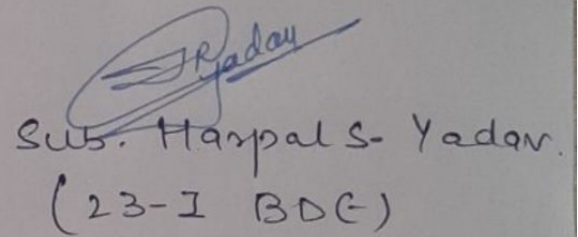 Yadav
Sub. Harpal S. Yadav.
(23-I BDE)